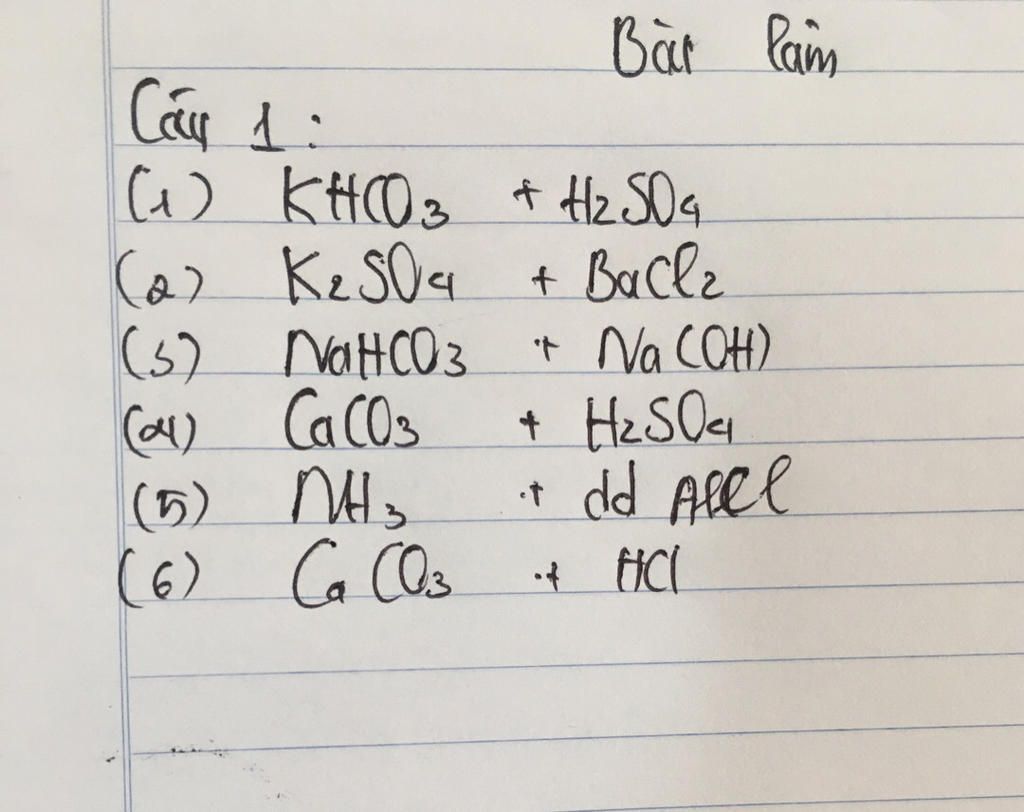 Bài làm
Câu 1:
(1) KHCO3 + H2SO4
(2) K2SO4 + BaCl2
(3) NaHCO3 + Na(OH)
(4) CaCO3 + H2SO4
(5) NH3 + dd AlCl
(6) CaCO3 + HCl